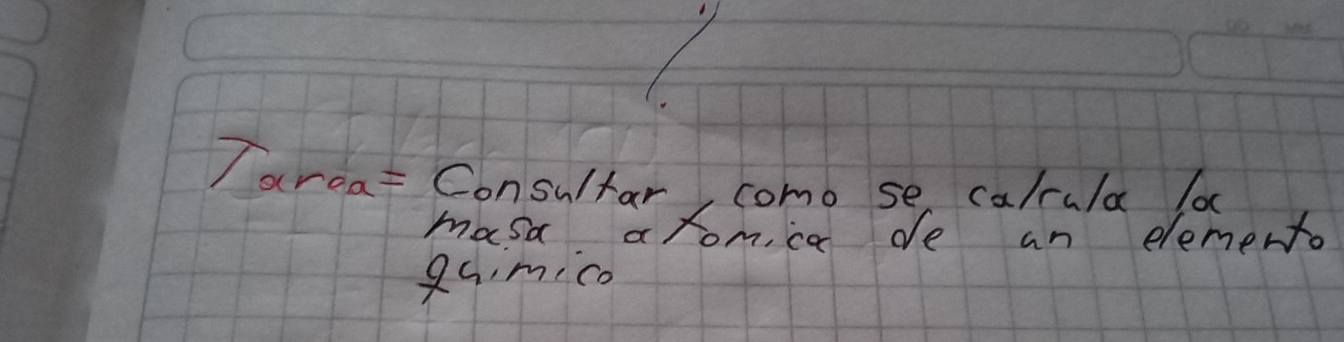 Tarea= Consultar como se calcula la
masa atomica de un elemento
quimico